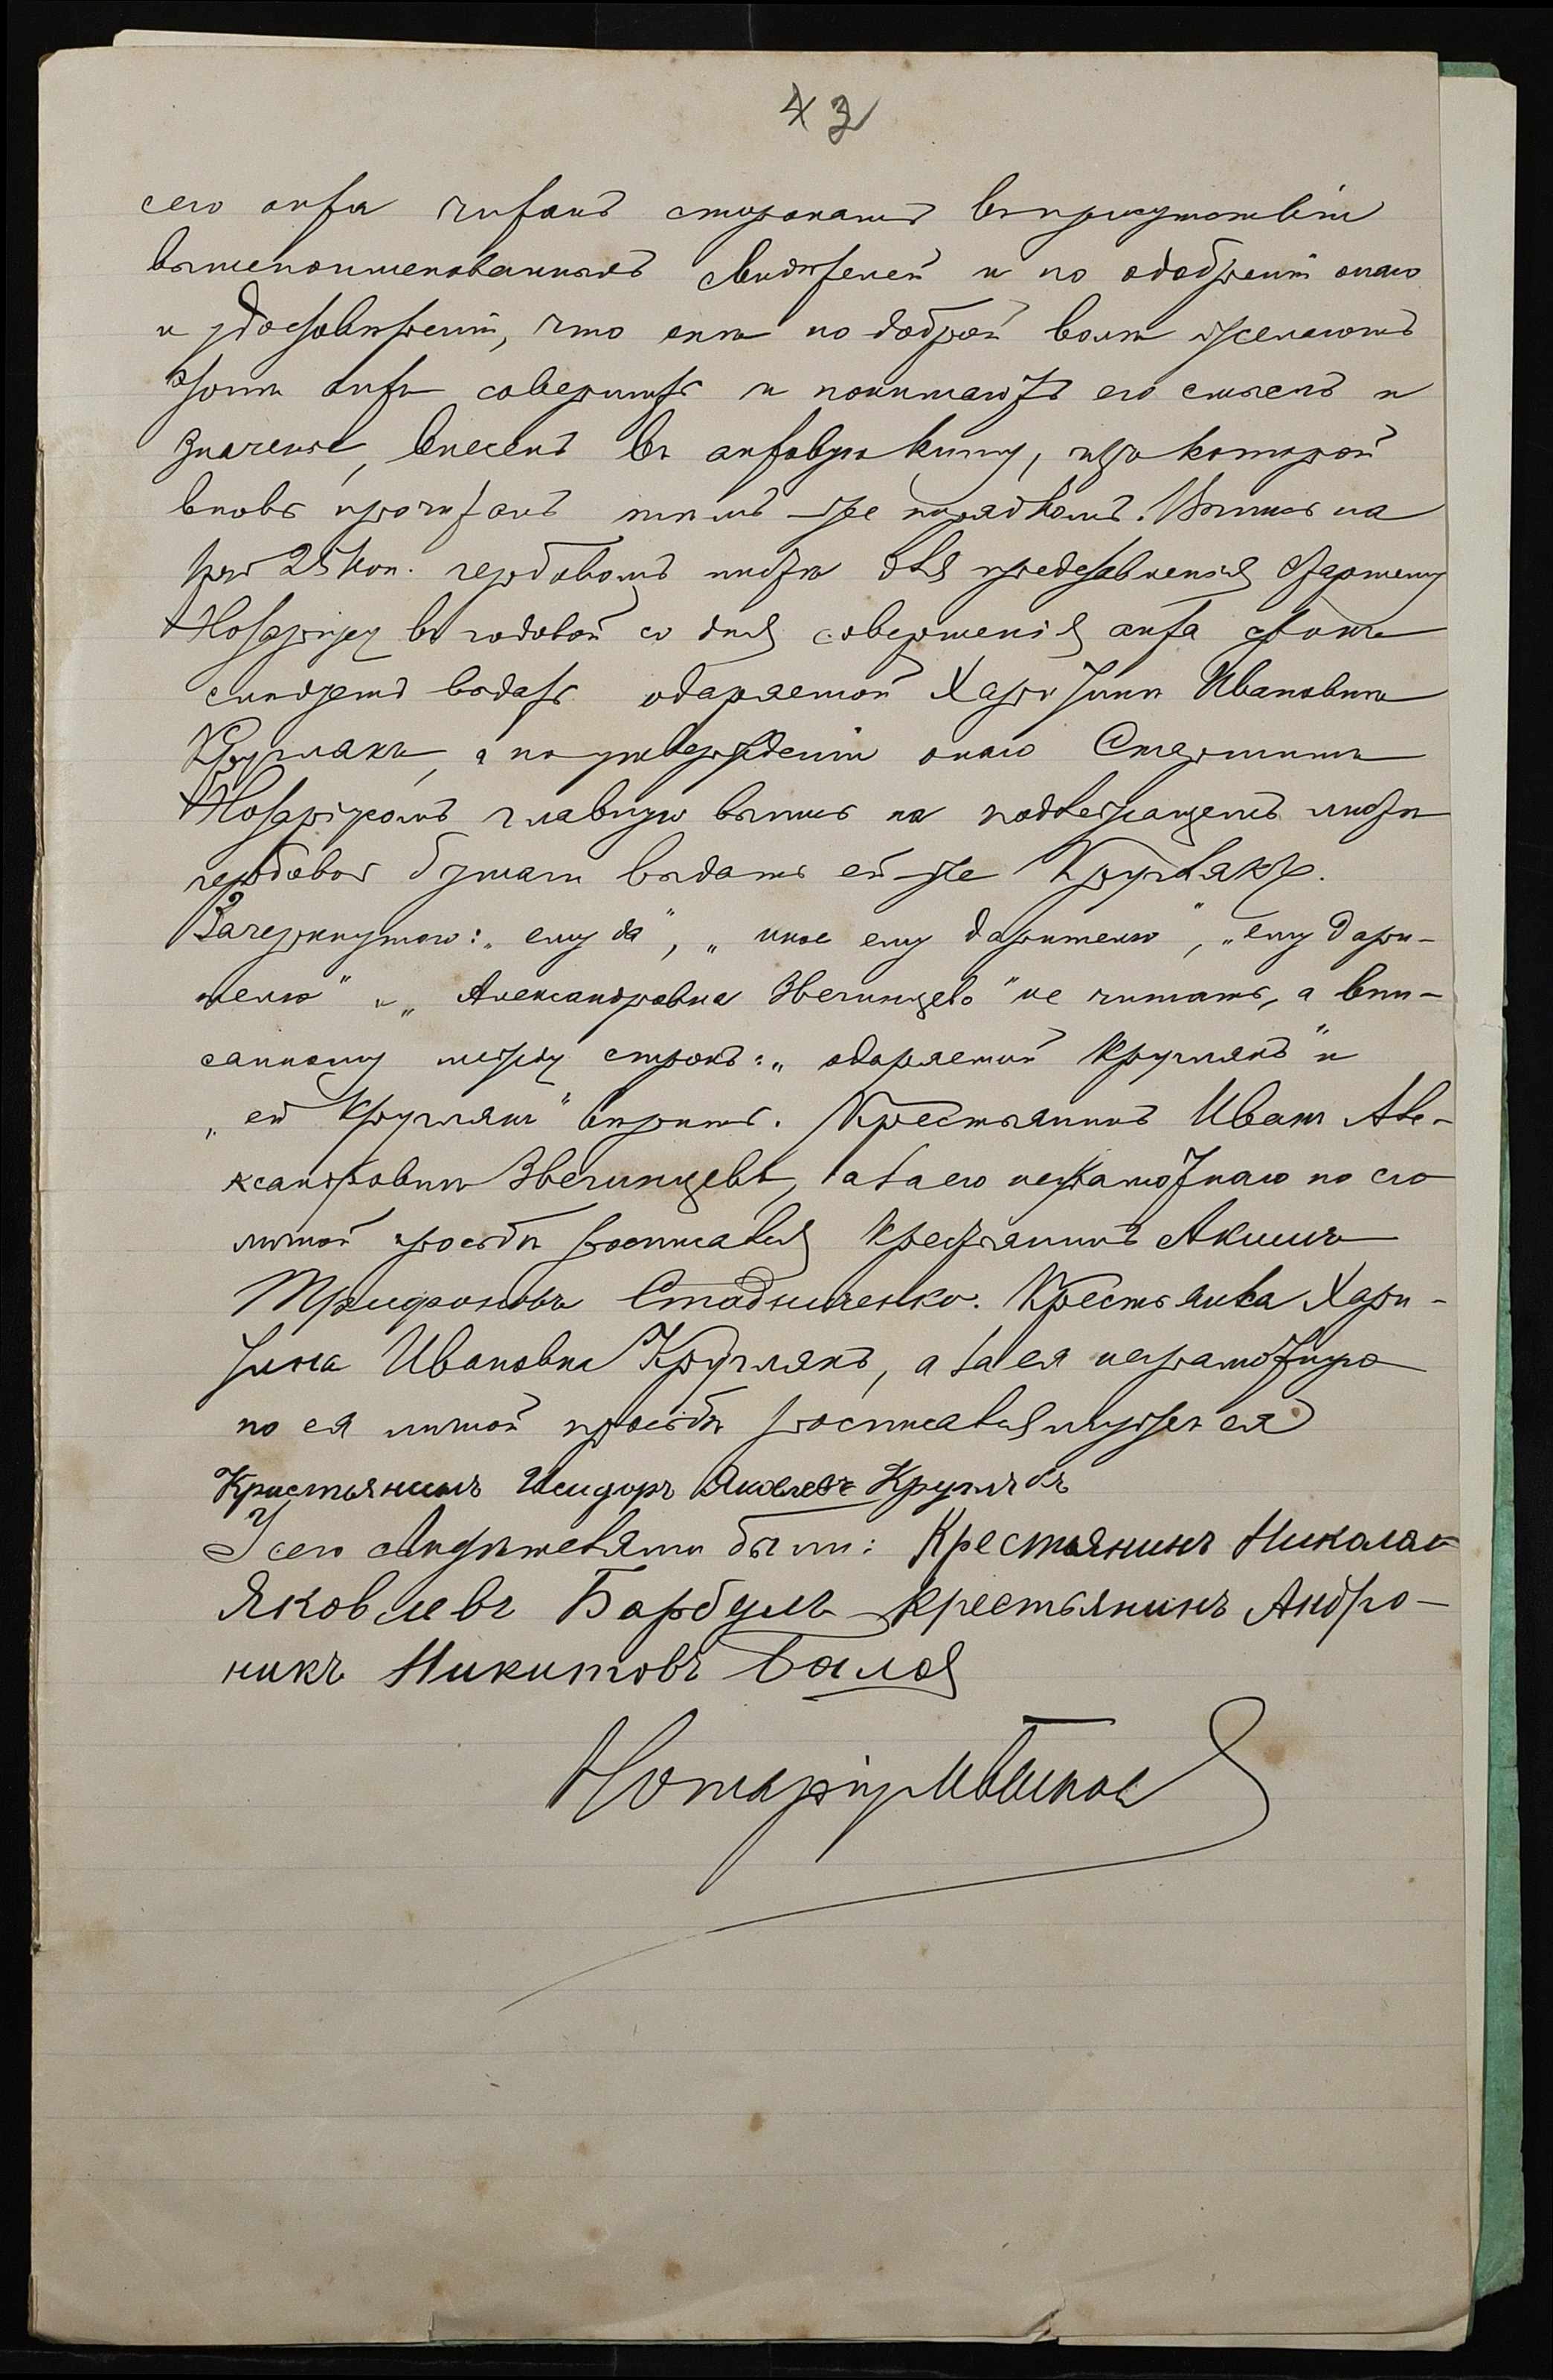 43
сего акта читанъ сторонамъ въ присутствіи
вышепоименованныхъ свидѣтелей и по одобреніи онаго
и удостовѣреніи, что они по доброй волѣ желаютъ
этотъ актъ совершить и понимаютъ его смыслъ и
значеніе, внесенъ въ актовую книгу, изъ которой
вновь прочитанъ тѣмъ же порядкомъ. Выпись на
25 коп. гербовомъ листѣ для представленія Старшему
Нотаріусу въ годовой со дня совершенія акта срокъ
слѣдуетъ выдать одаряемой Харитинѣ Ивановнѣ
Круглякъ, а по утвержденіи онаго Старшимъ
Нотаріусомъ главную выпись на подлежащемъ листѣ
гербовой бумаги выдать ей-же Круглякъ.
Зачеркнутаго: „ему да", „ ему дарителю", „ему дари-
телю" и „Александровна Звегинцево" не читать, а впи-
санному между строкъ: „одаряемой Круглякъ" и
„ей Круглякъ" вѣрить. Крестьянинъ Иванъ Але-
ксандровичъ Звегинцевъ, а за его неграмотнаго по его
личной просьбѣ росписался крестьянинъ Акимъ
Трифоновъ Стадниченко. Крестьянка Хари-
тина Ивановна Круглякъ, а за ея неграмотную
по ея личной просьбѣ росписался мужъ ея
Кристьянинъ Исидоръ Яковлевъ Круглякъ
У сего свидѣтелями были: Крестьянинъ Николай
Яковлевъ Барбулъ Крестьянинъ Андро-
никъ Никитовъ Балая
Нотаріусъ